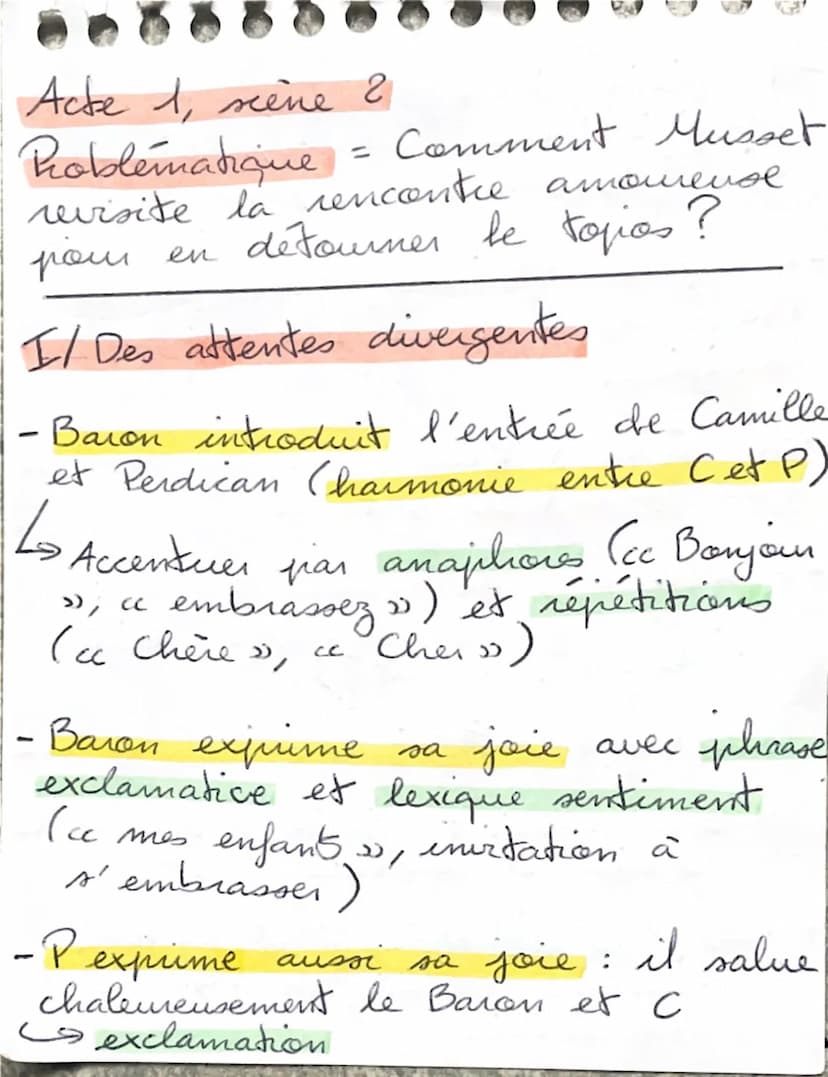 Acte 1, scène 2
Problématique = Comment Musset
revisite la rencontre amoureuse
pour en détourner le topos ?
I/ Des attentes divergentes
- Baron introduit l'entrée de Camille
et Perdican (harmonie entre C et P)
↳ Accentuer par anaphores (« Bonjour
», « embrassez ») et répétitions
(« Chère », « Cher »)
- Baron exprime sa joie avec phrase
exclamative et lexique sentiment
(« mes enfants », invitation à
s'embrasser)
- P exprime aussi sa joie : il salue
chaleureusement le Baron et C
↳ exclamation